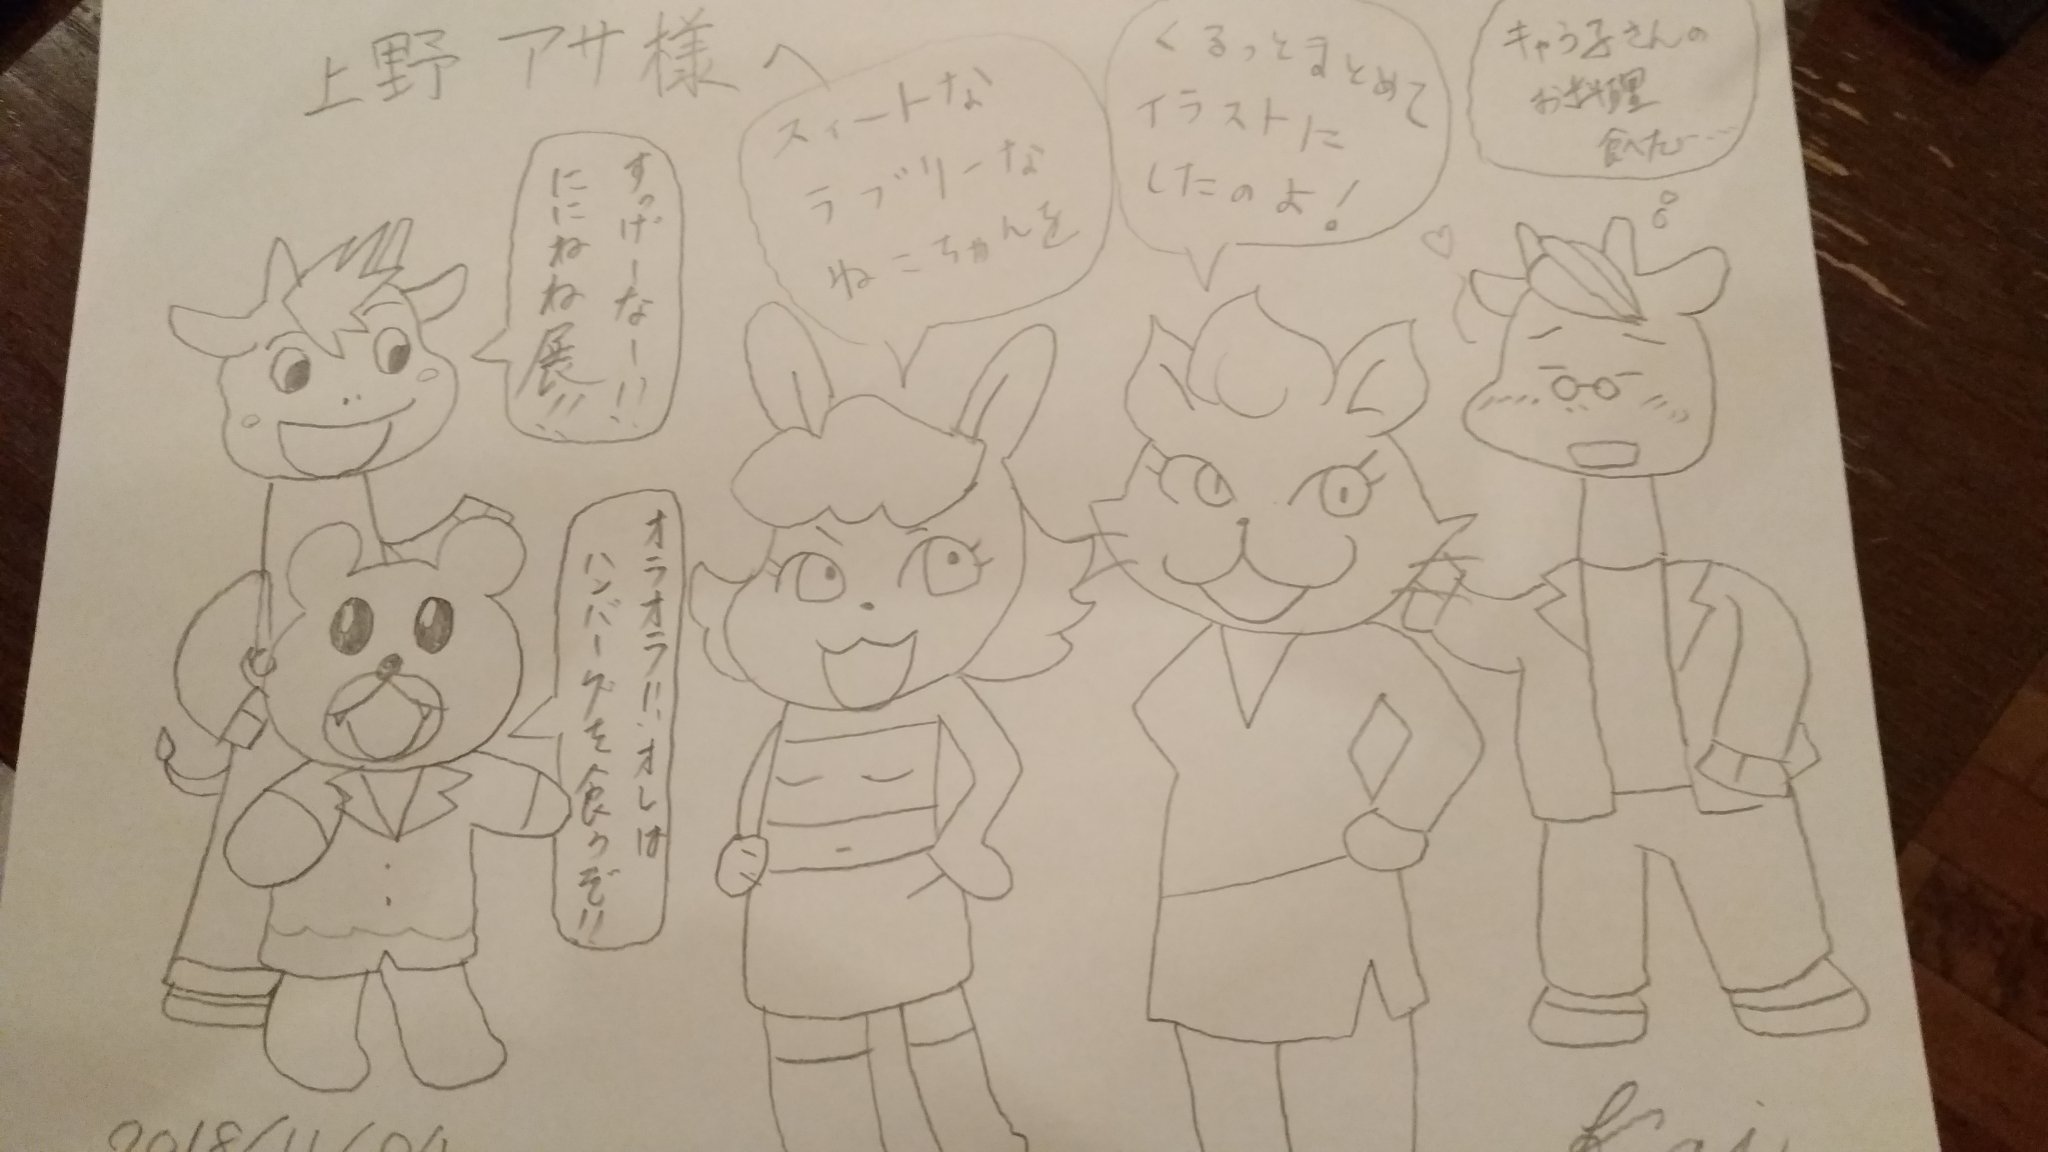 上野アサ様へ
すっげーなー!!
ににねね展!!
オラオラ!!オレは
ハンバーグを食うぞ!!
スィートな
ラブリーな
ねこちゃんを
くるっとまとめて
イラストに
したのよ!
キャラ子さんの
お料理
食べたい…
2018/11/04
Kai